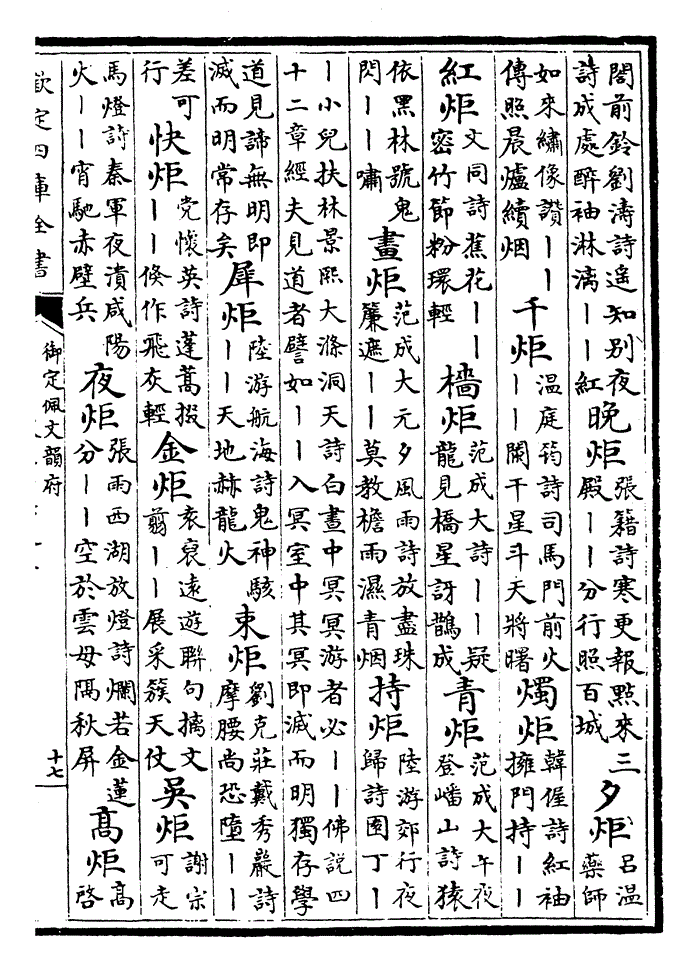 閤前鈴劉濤詩遥知别夜
詩成處醉袖淋漓丨丨紅
晚炬
張籍詩寒更報㸃来三
殿丨丨分行照百城
夕炬
吕温
藥師
如来繡像讚丨丨
傳照晨爐續烟
千炬
温庭筠詩司馬門前火
丨丨闌干星斗天將曙
燭炬
韓偓詩紅袖
擁門持丨丨
紅炬
文同詩蕉花丨丨
密竹節粉環輕
檣炬
范成大詩丨丨疑
龍見橋星訝鵲成
青炬
范成大午夜
登嶓山詩猿
依黑林號鬼
閃丨丨嘯
畫炬
范成大元夕風雨詩放盡珠
簾遮丨丨莫教檐雨濕青烟
持炬
陸游郊行夜
歸詩園丁丨
丨小兒扶林景熙大滌洞天詩白晝中冥冥游者必丨丨佛説四
十二章經夫見道者譬如丨丨入冥室中其冥即滅而明獨存學
道見諦無明即
滅而明常存矣
犀炬
陸游航海詩鬼神駭
丨丨天地赫龍火
束炬
劉克莊戴秀巖詩
摩腰尚恐墮丨丨
差可
行
快炬
党懷英詩蓬蒿掇
丨丨倐作飛灰輕
金炬
袁裒遠遊聯句摛文
翦丨丨展采簇天仗
吳炬
謝宗
可走
馬燈詩秦軍夜潰咸陽
火丨丨宵馳赤壁兵
夜炬
張雨西湖放燈詩爛若金蓮
分丨丨空於雲母隔秋屏
髙炬
髙
啓
欽定四庫全書
御定佩文韻府
十七